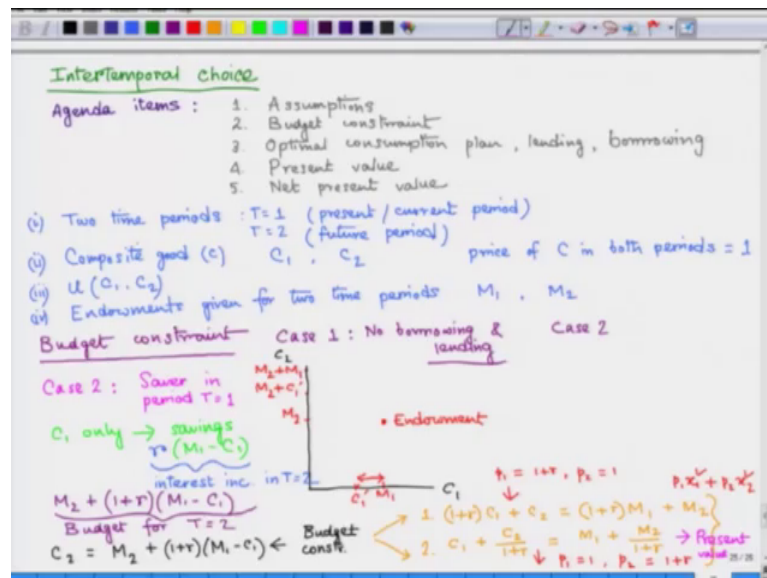 Intertemporal choice
Agenda items : 1. Assumptions
2. Budget constraint
3. Optimal consumption plan, lending, borrowing
4. Present value
5. Net present value
(i) Two time periods : T=1 (present / current period)
T=2 (future period)
(ii) Composite good (c) C₁, C₂ price of C in both periods = 1
(iii) U(C₁, C₂)
(iv) Endowments given for two time periods M₁, M₂
Budget constraint Case 1 : No borrowing & lending Case 2
Case 2 : Saver in period T=1
C₁ only → savings
r(M₁-C₁)
interest inc. in T=2
M₂ + (1+r)(M₁-C₁)
Budget for T=2
C₂ = M₂ + (1+r)(M₁-C₁) ← Budget constr.
C₂
M₂+M₁
M₂+C₁'
M₂
• Endowment
C₁' M₁ C₁
P₁ = 1+r, P₂ = 1 P₁x₁ + P₂x₂
1. (1+r)C₁ + C₂ = (1+r)M₁ + M₂
2. C₁ + C₂/(1+r) = M₁ + M₂/(1+r) → Present value
P₁ = 1, P₂ = 1+r
25/25